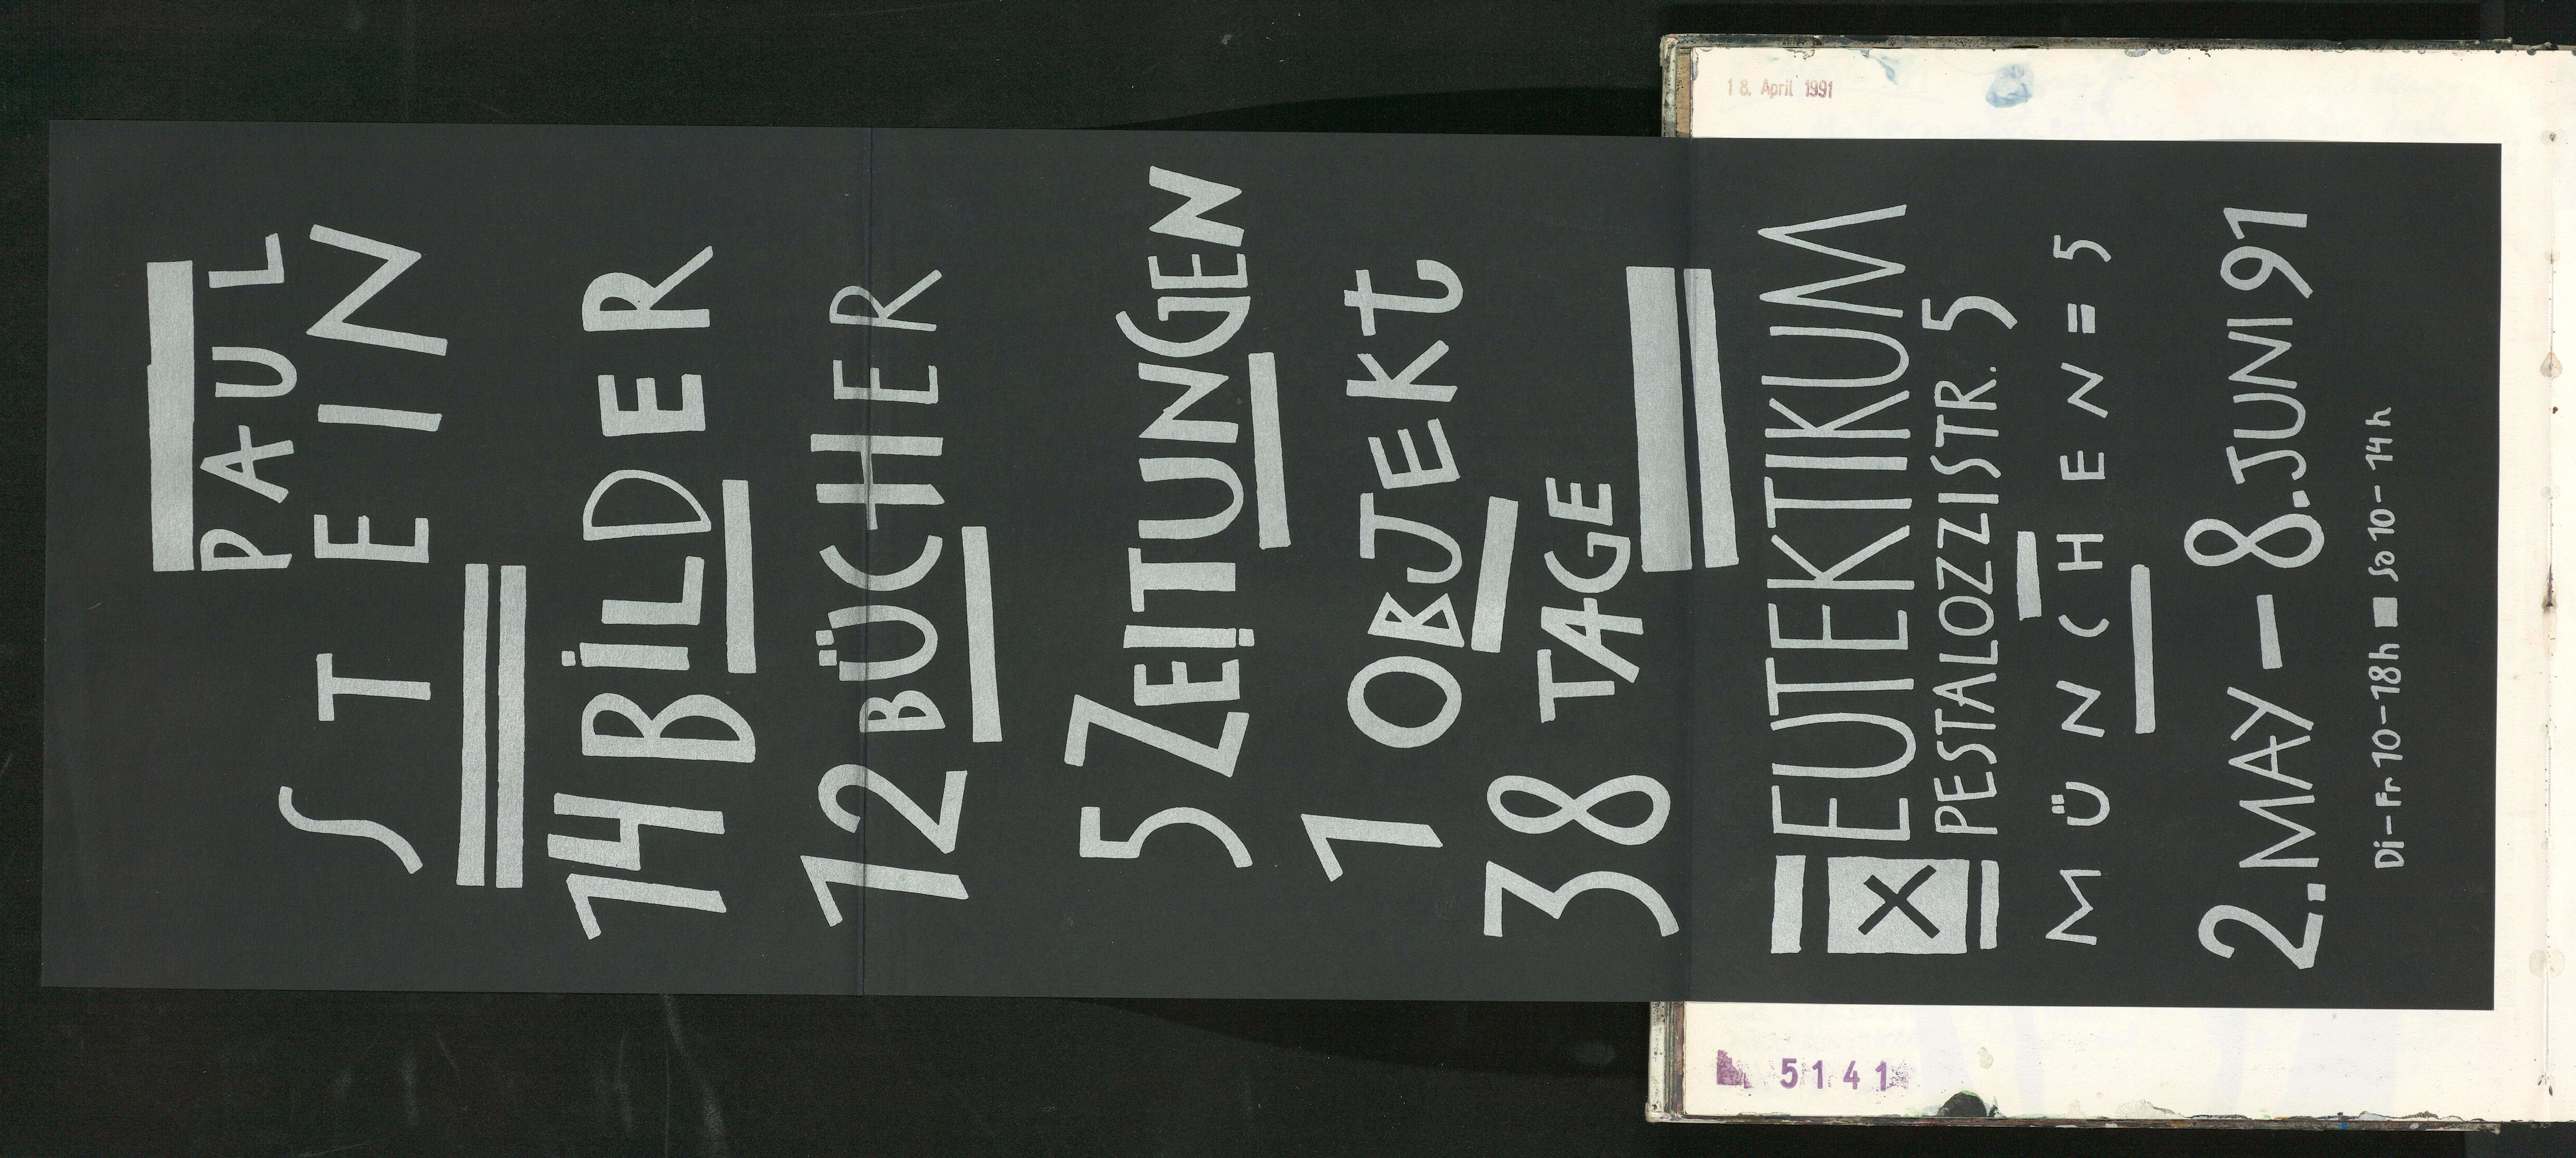 18. April 1991
PAUL
STEIN
14 BİLDER
12 BÜCHER
5 ZEITUNGEN
1 OBJEKt
38 TAGE
EUTEKTIKUM
X PESTALOZZISTR. 5
MÜNCHEN = 5
2. MAY – 8. JUNI 91
Di – Fr 10 – 18 h ■ Sa 10 – 14 h
5141